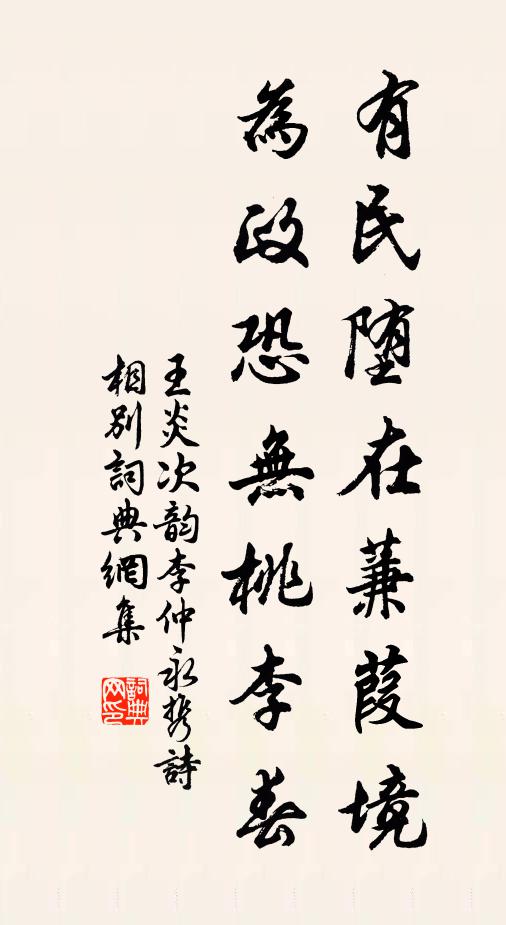 有民堕在蒹葭境
為政恐無桃李春
王炎次韵李仲永携詩
相别詞典網集
詞典
网印